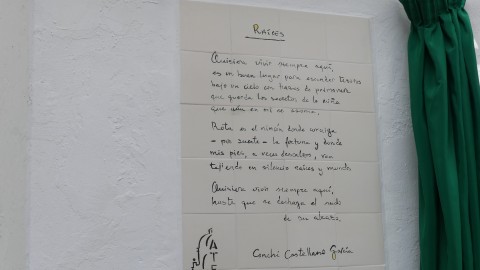 RAÍCES
Quisiera vivir siempre aquí,
es un buen lugar para esconder
bajo un cielo con
que guarda los secretos de la niña
que aún en mí se
Rota es el rincón donde arraiga
- por suerte - la fortuna y donde
mis pies, a veces descalzos, van
tejiendo en silencio raíces y mundo.
Quisiera vivir siempre aquí,
hasta que se deshaga el nudo
de su
Conchi Castellano García
ATE